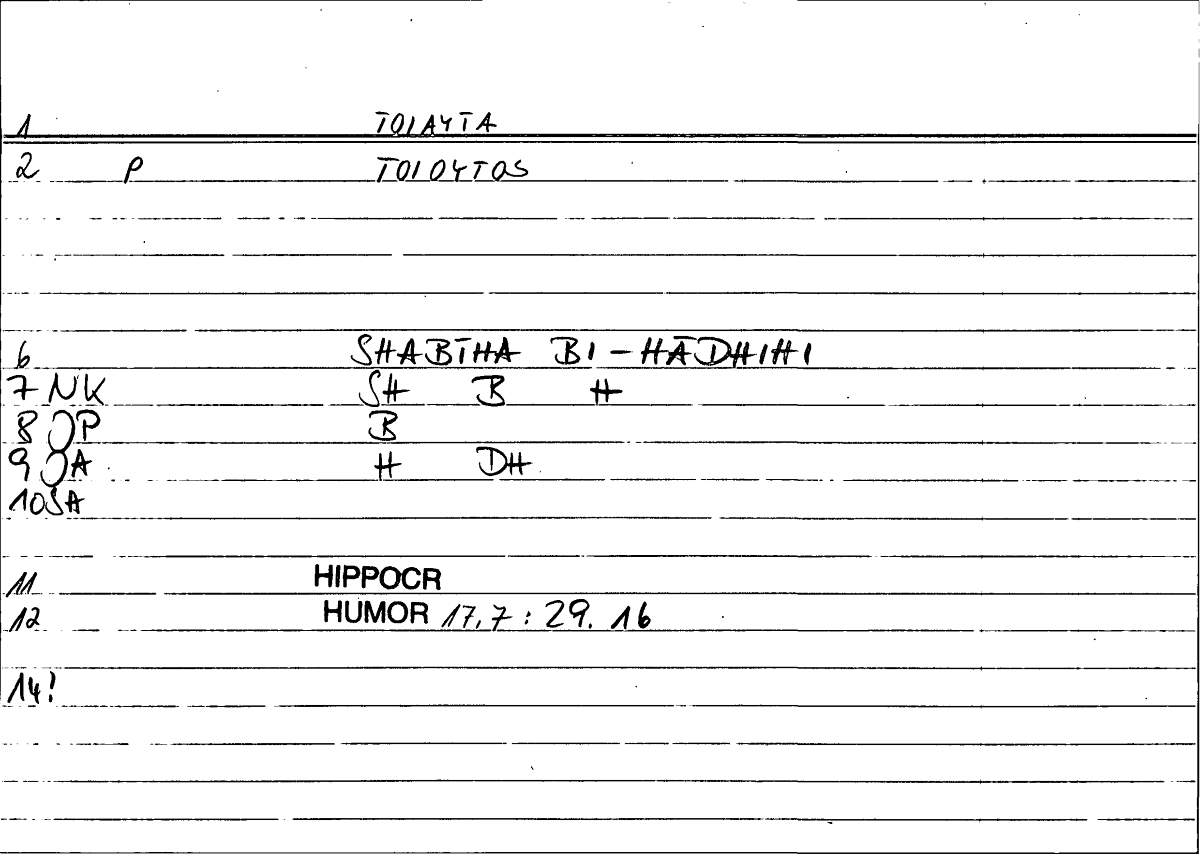 1 TOIAYTA
2 P TOIOYTOS
6 SHABĪHA BI-HĀDHIHI
7 NK SH B H
8 JP B
9 JA H DH
10 SA
11 HIPPOCR
12 HUMOR 17,7 : 29. 16
14!